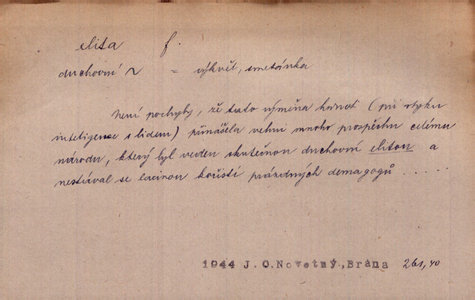 elita f.
duchovní ~ = výkvět, smetánka
Není pochyby, že tato výměna hodnot (při styku
inteligence s lidem) přinášela velmi mnoho prospěchu celému
národu, který byl veden skutečnou duchovní elitou a
nestával se lacinou kořistí prázdných demagogů .....
1944 J.O.Novotný,Brána 261,40